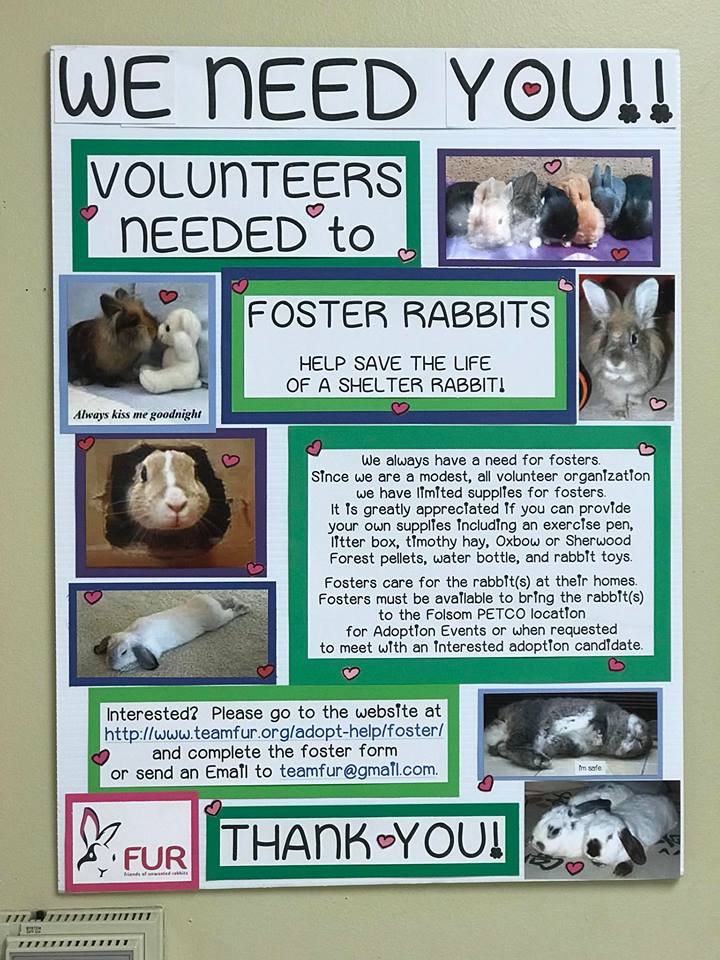 WE NEED YOU!!
VOLUNTEERS
NEEDED to
FOSTER RABBITS
HELP SAVE THE LIFE
OF A SHELTER RABBIT!
Always kiss me goodnight
We always have a need for fosters.
Since we are a modest, all volunteer organization
we have limited supplies for fosters.
It is greatly appreciated if you can provide
your own supplies including an exercise pen,
litter box, timothy hay, Oxbow or Sherwood
Forest pellets, water bottle, and rabbit toys.
Fosters care for the rabbit(s) at their homes.
Fosters must be available to bring the rabbit(s)
to the Folsom PETCO location
for Adoption Events or when requested
to meet with an interested adoption candidate.
Interested? Please go to the website at
http://www.teamfur.org/adopt-help/foster/
and complete the foster form
or send an Email to teamfur@gmail.com.
I'm safe.
FUR
friends of unwanted rabbits
THANK YOU!